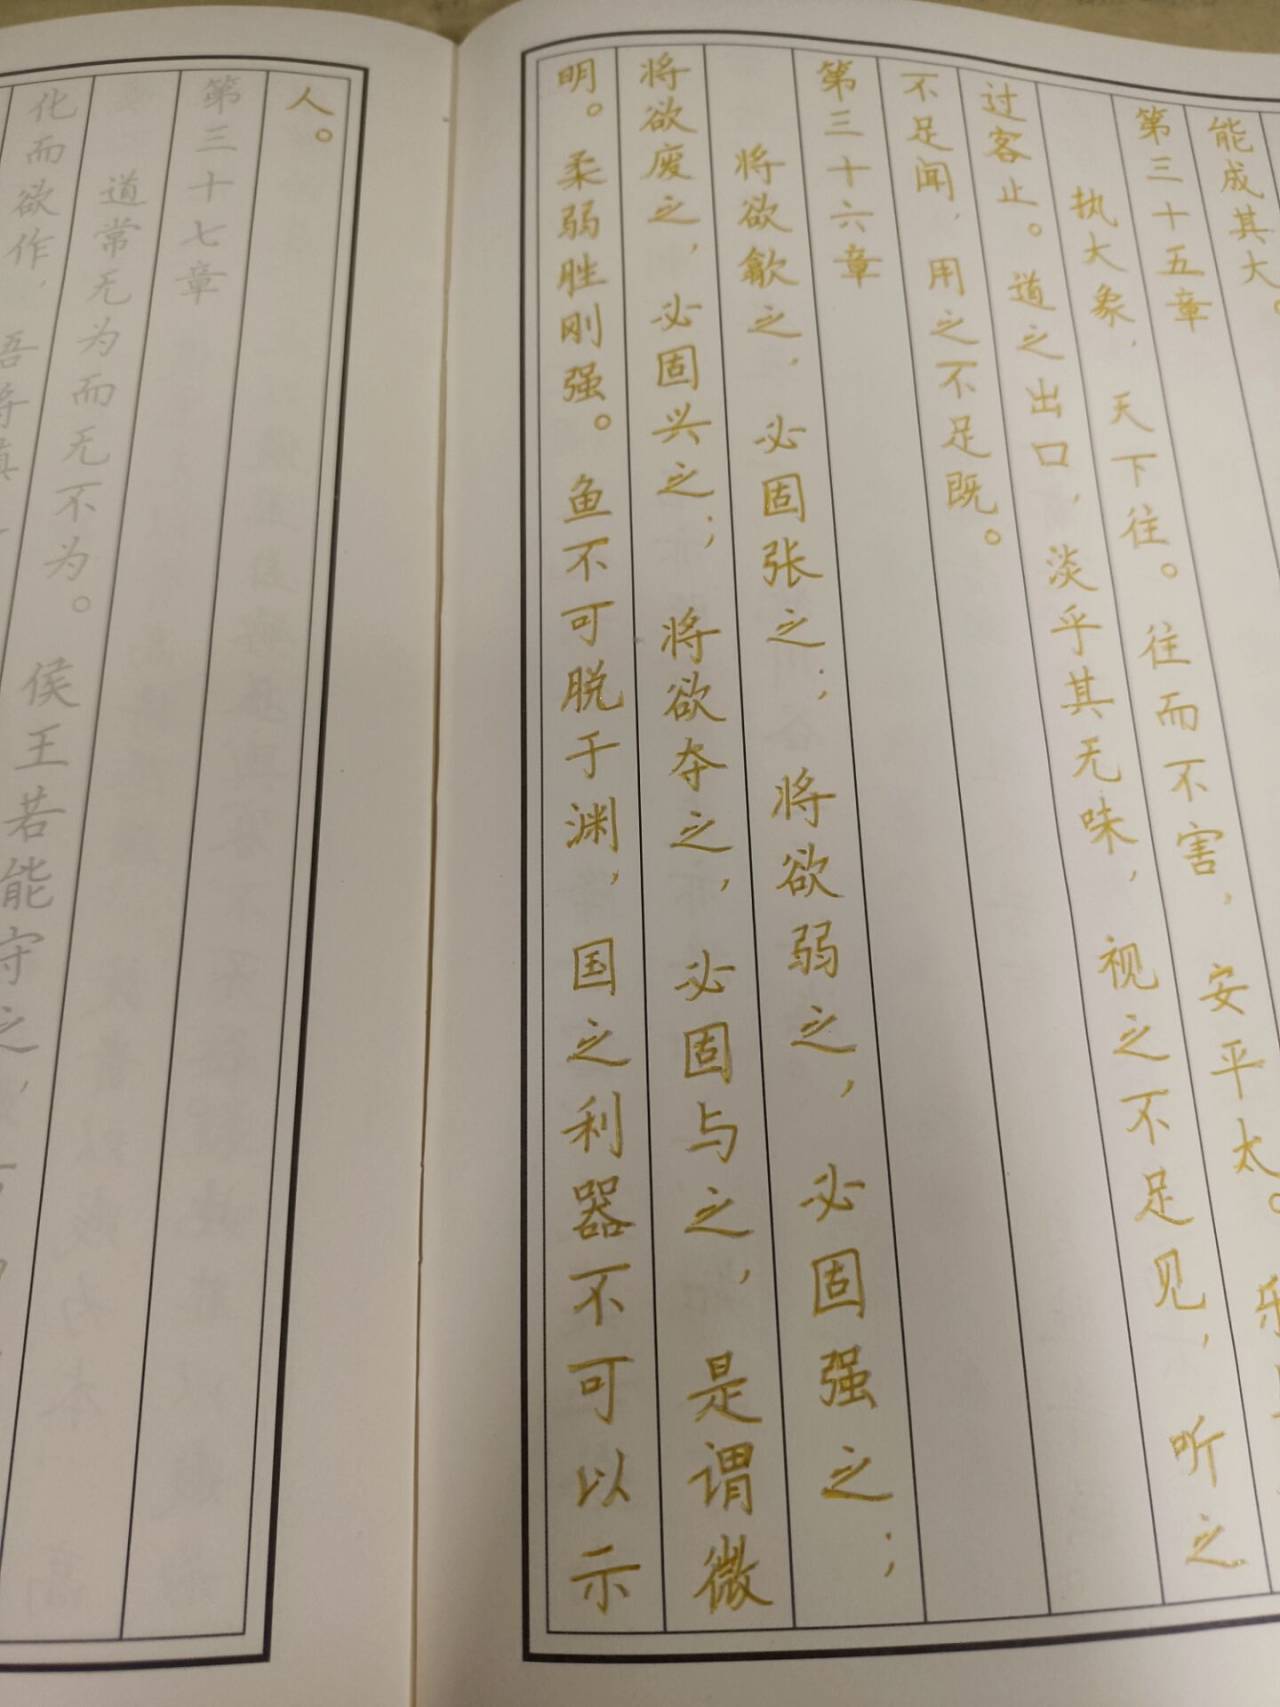 能成其大。
第三十五章
执大象，天下往。往而不害，安平太。乐
过客止。道之出口，淡乎其无味，视之不足见，听之
不足闻，用之不足既。
第三十六章
将欲歙之，必固张之；将欲弱之，必固强之；
将欲废之，必固兴之；将欲夺之，必固与之，是谓微
明。柔弱胜刚强。鱼不可脱于渊，国之利器不可以示
人。
第三十七章
道常无为而无不为。侯王若能守之，
化而欲作，吾将镇